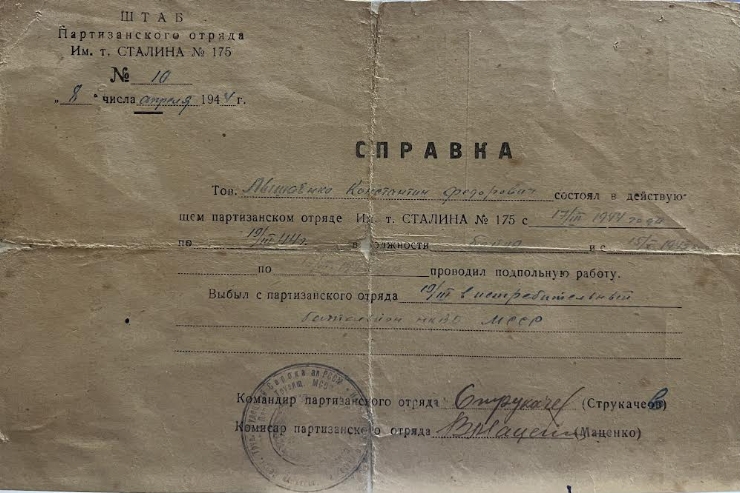 ШТАБ
Партизанского отряда
Им. т. СТАЛИНА № 175
№ 10
„ 8 “ числа апреля 1944 г.
СПРАВКА
Тов. Константин Федорович состоял в действую-
щем партизанском отряде Им. т. СТАЛИНА № 175 с 17/III 1944 года
по 19/III 44 г. в должности бойца и с
по проводил подпольную работу.
Выбыл с партизанского отряда 19/III в истребительный
батальон МССР
Командир партизанского отряда (Струкачев)
Комисар партизанского отряда (Маценко)